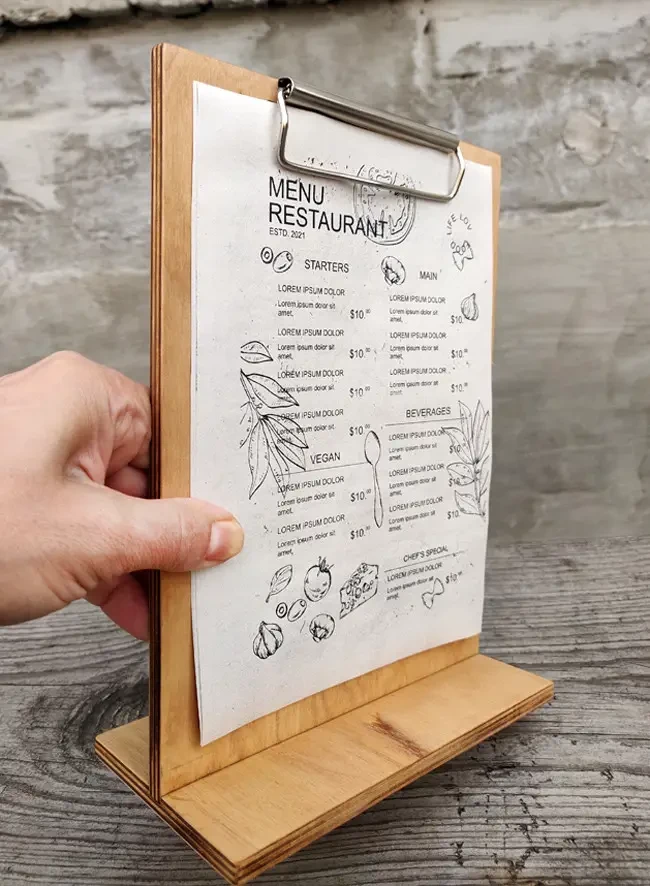 MENU
RESTAURANT
ESTD. 2021
LIFE LOV
STARTERS
LOREM IPSUM DOLOR
Lorem ipsum dolor sit
amet, $10.00
LOREM IPSUM DOLOR
Lorem ipsum dolor sit
amet, $10.00
LOREM IPSUM DOLOR
Lorem ipsum dolor sit
amet, $10.00
LOREM IPSUM DOLOR
Lorem ipsum dolor sit
amet, $10.00
VEGAN
LOREM IPSUM DOLOR
Lorem ipsum dolor sit
amet, $10.00
LOREM IPSUM DOLOR
Lorem ipsum dolor sit
amet, $10.00
MAIN
LOREM IPSUM DOLOR
Lorem ipsum dolor sit
amet, $10.00
LOREM IPSUM DOLOR
Lorem ipsum dolor sit
amet, $10.00
LOREM IPSUM DOLOR
Lorem ipsum dolor sit
amet, $10.00
BEVERAGES
LOREM IPSUM DOLOR
Lorem ipsum dolor sit
amet, $10
LOREM IPSUM DOLOR
Lorem ipsum dolor sit
amet, $10
LOREM IPSUM DOLOR
Lorem ipsum dolor sit
amet, $10
CHEF'S SPECIAL
LOREM IPSUM DOLOR
Lorem ipsum dolor sit
amet, $10.00